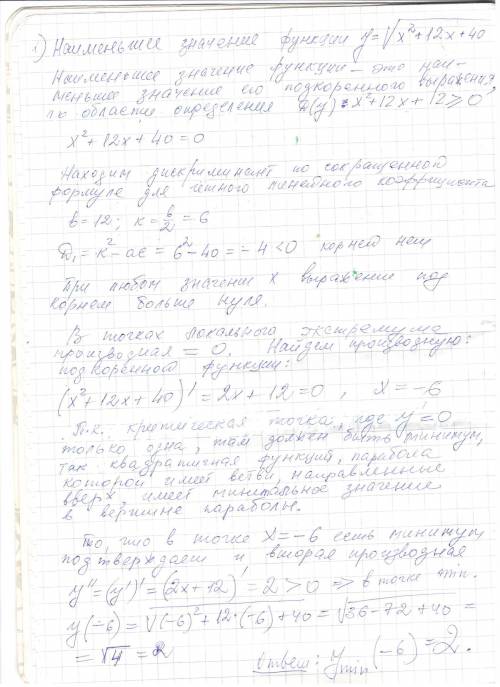 1) Наименьшее значение функции y=√x²+12x+40
Наименьшее значение функции – это наи-
меньшее значение его подкоренного выражения,
по области определения D(y): x²+12x+12⩾0
x²+12x+40=0
Находим дискриминант по сокращенной
формуле для четного линейного коэффициента
b=12; k=b/2=6
D₁=k²-ac=6²-40=-4<0 корней нет
При любом значение x выражение под
корнем больше нуля.
В точках локального экстремума
производная = 0. Найдем производную:
подкоренного функции:
(x²+12x+40)'=2x+12=0, x=-6
Т.к. критическая точка, где y'=0
только одна, там должен быть минимум,
так квадратичная функций, парабола
которой имеет ветви, направленные
вверх, имеет минимальное значение
в вершине параболы.
То, что в точке x=-6 есть минимум
подтверждает и вторая производная
y''=(y')'=(2x+12)'=2>0 => в точке min.
y(-6)=√(-6)²+12·(-6)+40=√36-72+40=
=√4=2
Ответ: y min(-6)=2.